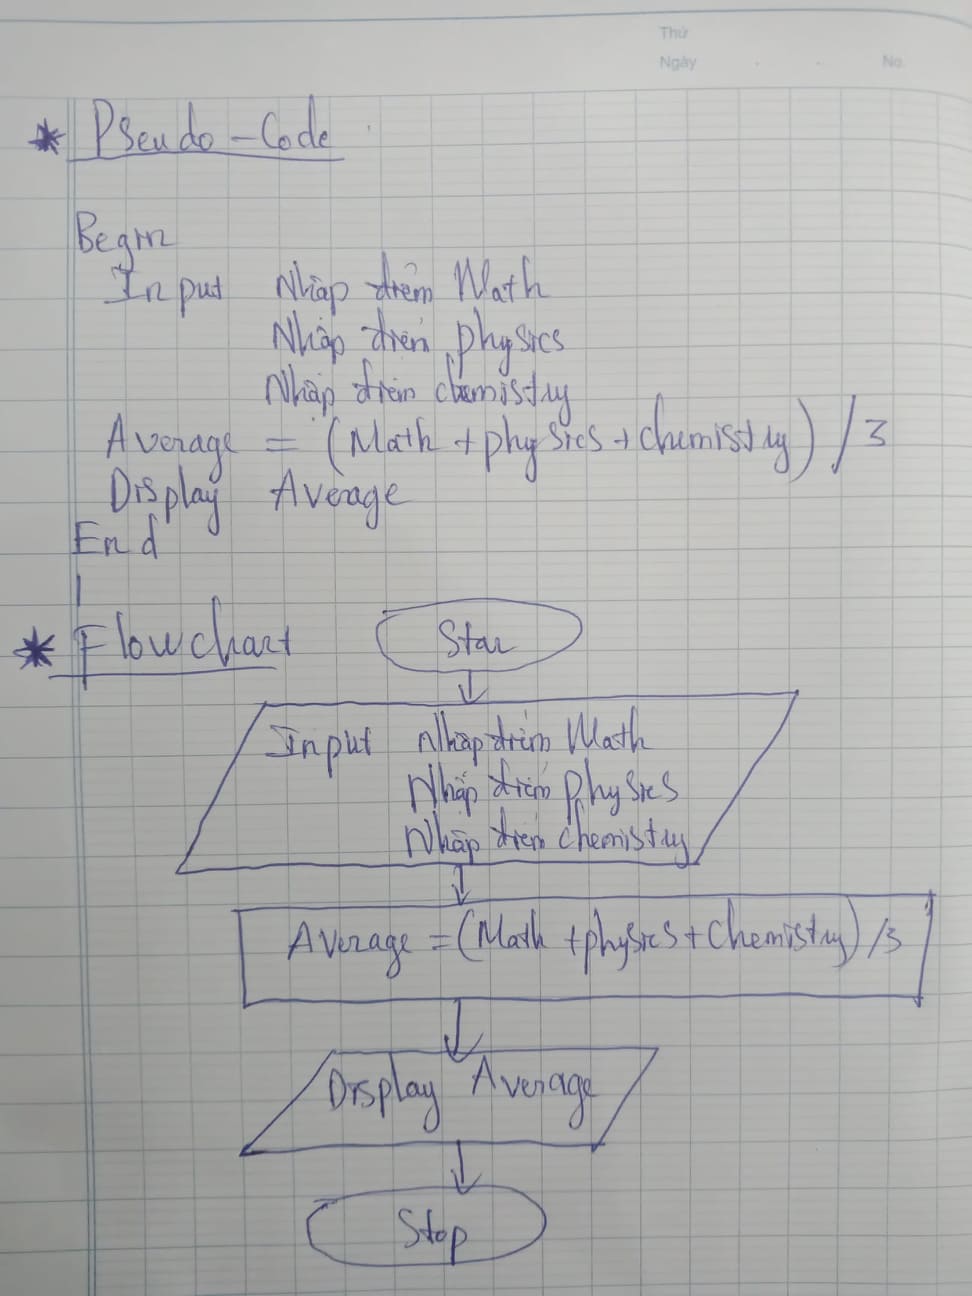 Thứ
Ngày . . No.
* Pseudo-Code
Begin
Input Nhập điểm Math
Nhập điểm physics
Nhập điểm chemistry
Average = (Math + physics + chemistry) / 3
Display Average
End
* Flowchart
Star
Input Nhập điểm Math
Nhập điểm physics
Nhập điểm chemistry
Average = (Math + physics + Chemistry) / 3
Display Average
Stop